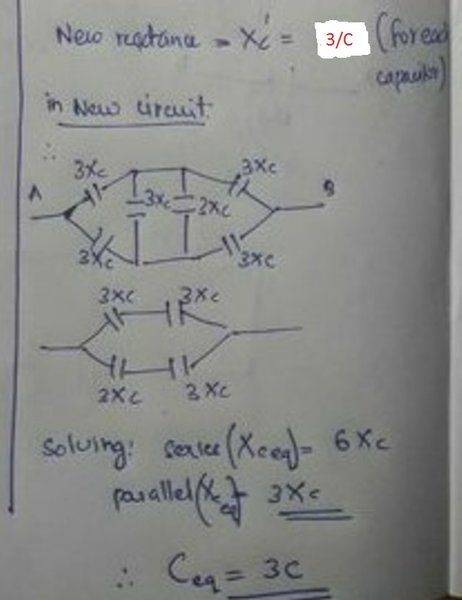 New reactance = Xc' = 3/C (for each
capacitor)
in New circuit:
∴
3Xc 3Xc
A B
3Xc 3Xc
3Xc 3Xc
3Xc 3Xc
3Xc 3Xc
solving: series (Xceq) = 6Xc
parallel (Xceq) = 3Xc
∴ Ceq = 3C